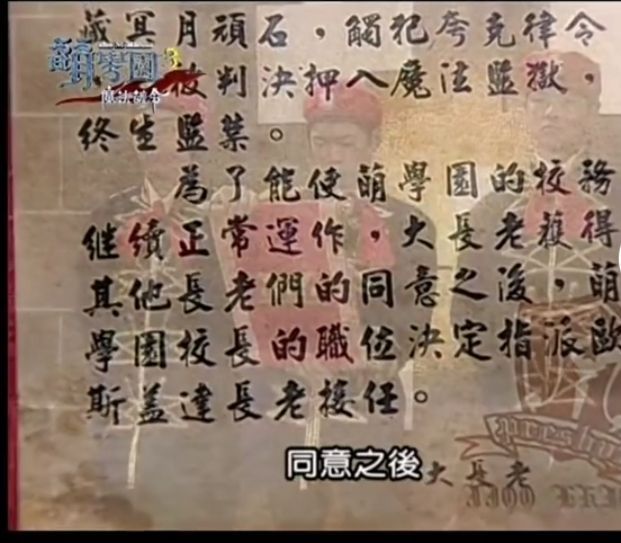 藏冥月頑石,觸犯夸克律令
被判決押入魔法監獄,
終生監禁。
為了能使萌學園的校務
繼續正常運作,大長老獲得
其他長老們的同意之後,萌
學園校長的職位決定指派歐
斯蓋達長老接任。
大長老
萌學園3
同意之後